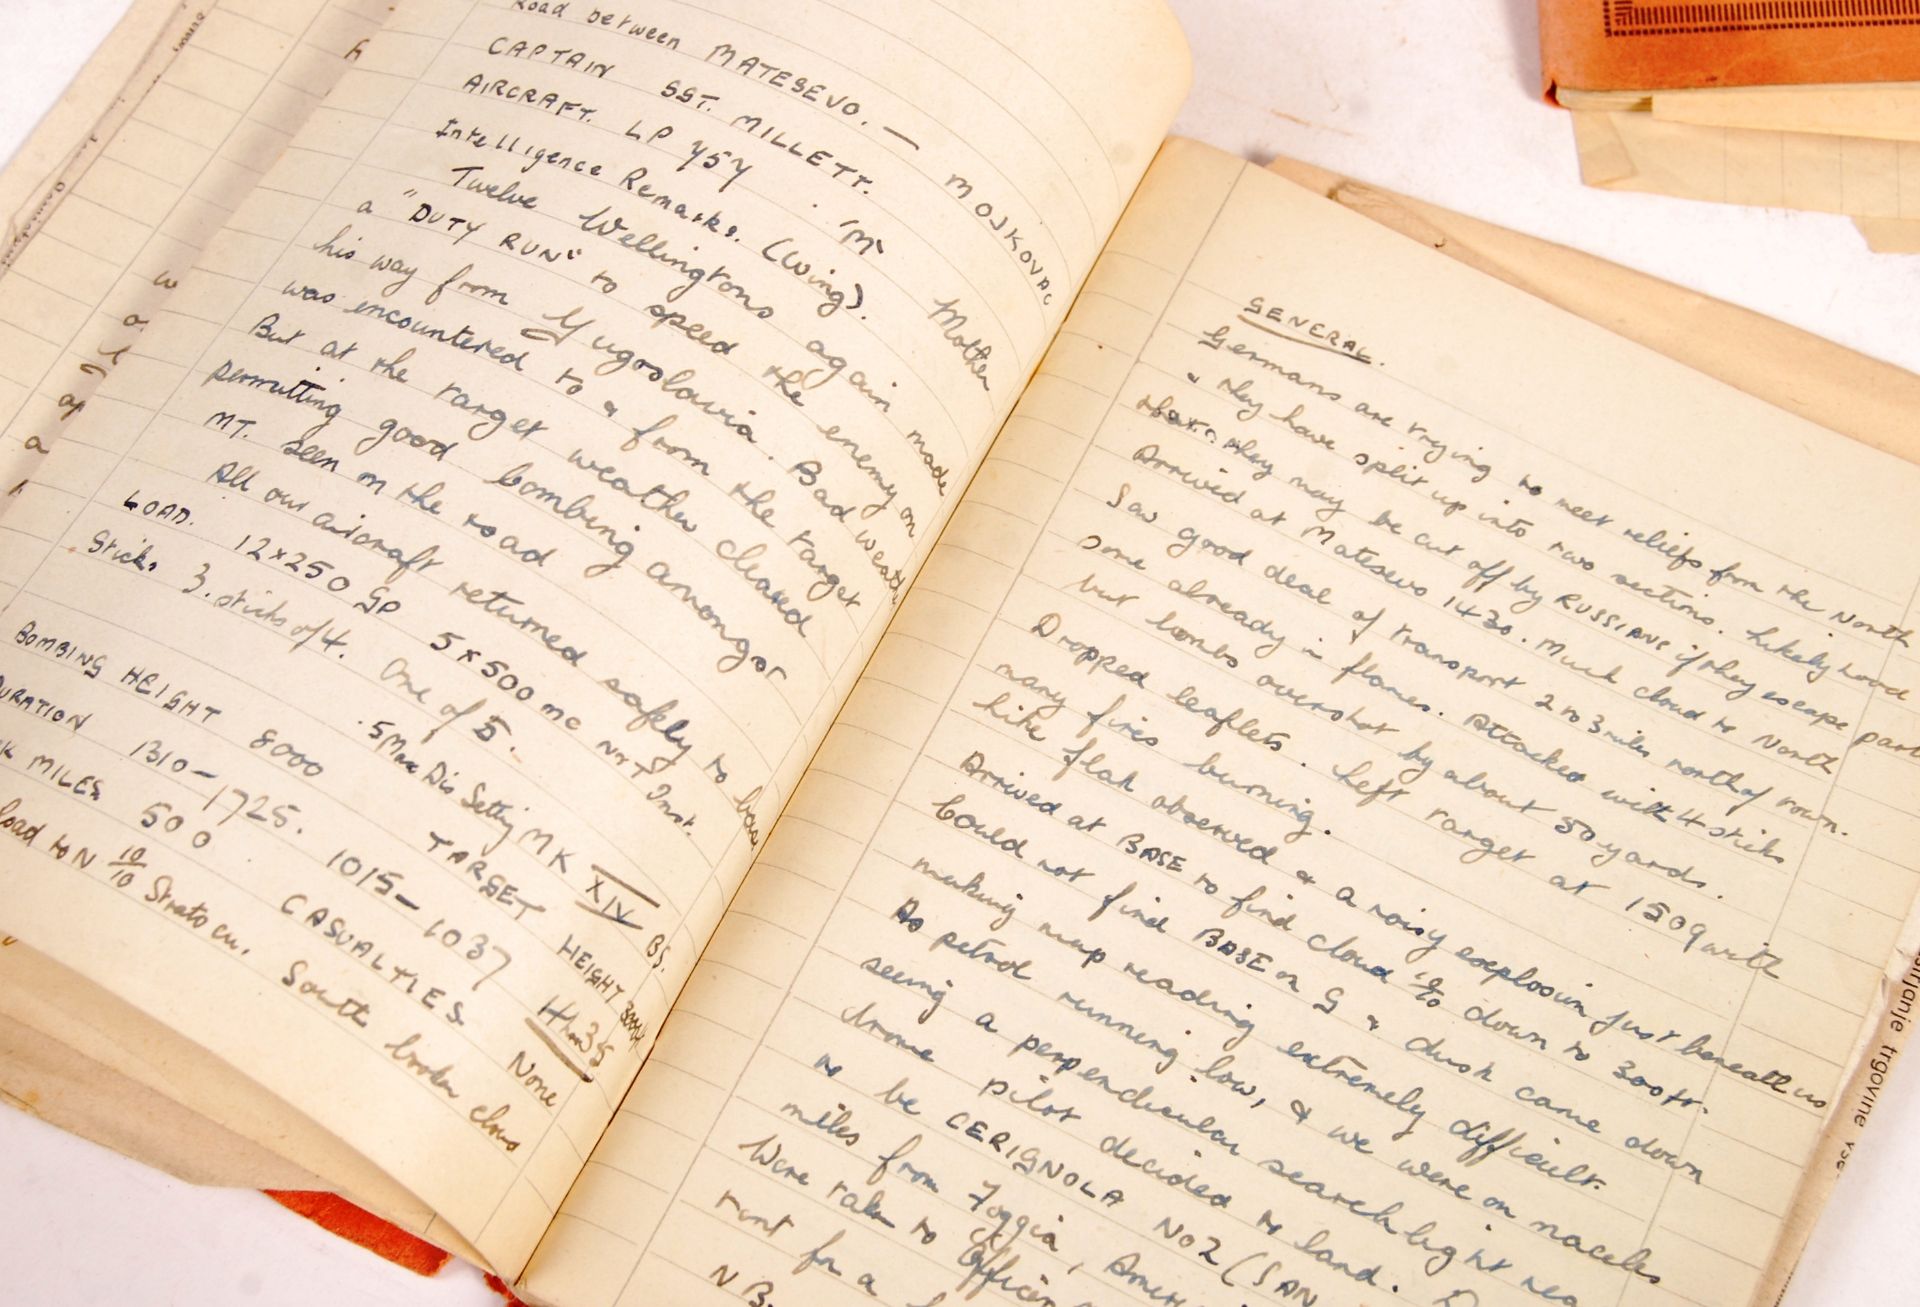 Road between MATESEVO. — MOJKOVAC
CAPTAIN SGT. MILLETT.
AIRCRAFT. LP 757 'M' Mother
Intelligence Remarks. (Wing).
Twelve Wellingtons again made
a "DUTY RUN" to speed the enemy on
his way from Yugoslavia. Bad weather
was encountered to & from the target
But at the target weather cleared
permitting good bombing amongst
MT. seen on the road
All our aircraft returned safely to base
LOAD. 12x250 GP 5x500 MC NMT Inst.
Sticks 3. sticks of 4. One of 5.
5 Dis Setting MK XIV BS.
BOMBING HEIGHT 8000 TARGET HEIGHT
DURATION 1310-1725. 1015-1037
MILES 500 CASUALTIES None
Road to N 10/10 Strato cu. South broken
GENERAL.
Germans are trying to meet reliefs from the North
& they have split up into two sections. Likelyhood
that they may be cut off by RUSSIANS if they escape part
Arrived at Matesevo 1430. Much cloud to North
Saw good deal of transport 2 to 3 miles north of town.
Some already in flames. Attacked with 4 sticks
but bombs overshot by about 50 yards.
Dropped leaflets. Left target at 1509 with
many fires burning.
Lite flak observed & a noisy explosion just beneath us
Arrived at BASE to find cloud 10/10 down to 300ft.
Could not find BASE on G & dusk came down
making map reading extremely difficult.
As petrol running low, & we were on nacelles
seeing a perpendicular searchlight near
drome pilot decided to land.
to be CERIGNOLA NO2 (SAN
miles from Foggia,
Were taken to Officers
tent for a
NB.
trgovine